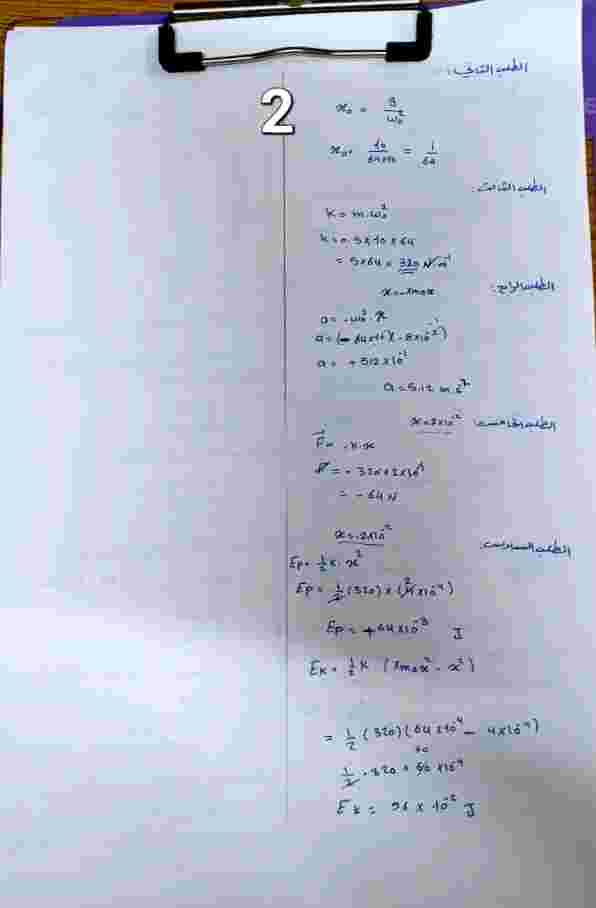 2
الطلب الثاني:
x₀ = g / ω₀²
x₀ = 10 / 64×10 = 1 / 64
الطلب الثالث:
k = m.ω₀²
k = 0.5×10×64
= 5×64 = 320 N m⁻¹
الطلب الرابع:
x = -xmax
a = -ω₀².x
a = + 512×10⁻²
a = 5.12 m.s⁻²
الطلب الخامس: x = 2×10⁻²
= - 64 N
الطلب السادس:
x = 2×10⁻²
Ep = ½ k. x²
Ep = ½ (320) × (4×10⁻⁴)
Ep = +64×10⁻³ J
Ek = ½ k (xmax² - x²)
= ½ (320) (64×10⁻⁴ - 4×10⁻⁴)
Ek = 96 × 10⁻² J